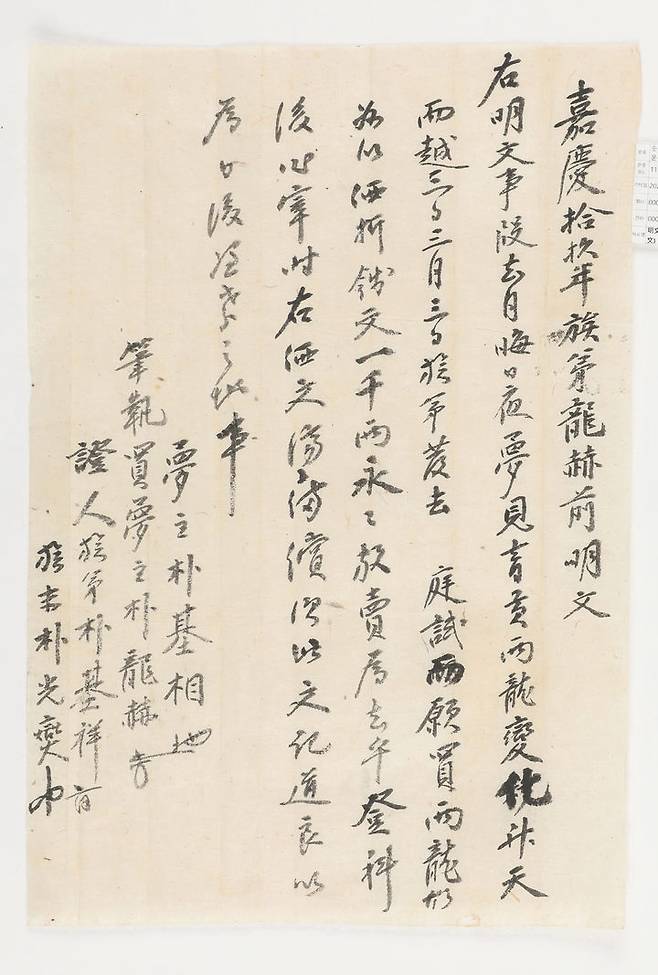 嘉慶拾玖年族弟龍赫前明文
右明文事段去月晦日夜夢見青黃兩龍變化升天
而越三日三月三日族弟發去 庭試而願買兩龍故
右以酒折錢文一千兩永永放賣爲去乎登科
後 時右酒文 備償 此文記導良以
爲日後憑考之地事
夢主朴基相
筆執買夢主朴龍赫
證人族弟朴基祥
族末朴光